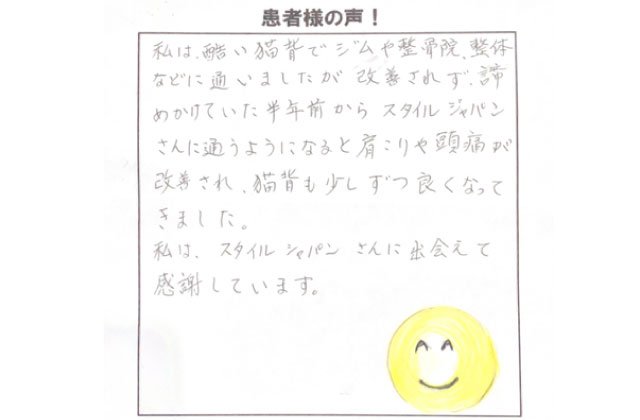 患者様の声！
私は、酷い猫背でジムや整骨院、整体
などに通いましたが改善されず、諦
めかけていた半年前からスタイルジャパン
さんに通うようになると肩こりや頭痛が
改善され、猫背も少しずつ良くなって
きました。
私は、スタイルジャパンさんに出会えて
感謝しています。